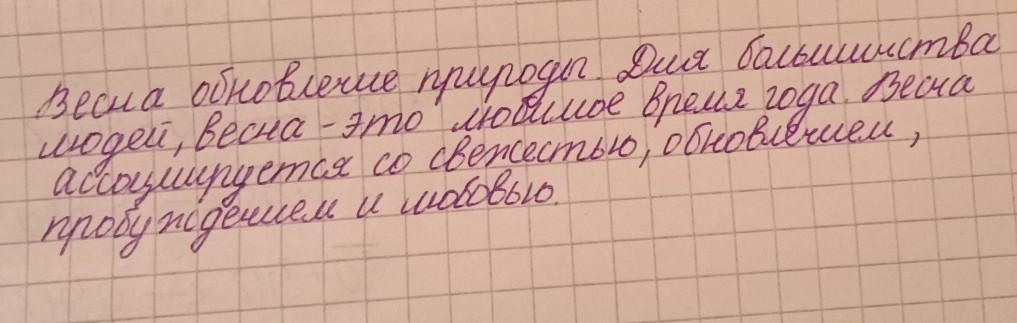 Весна обновление природы. Для большинства
людей, весна - это любимое время года. Весна
ассоциируется со свежестью, обновлением,
пробуждением и любовью.